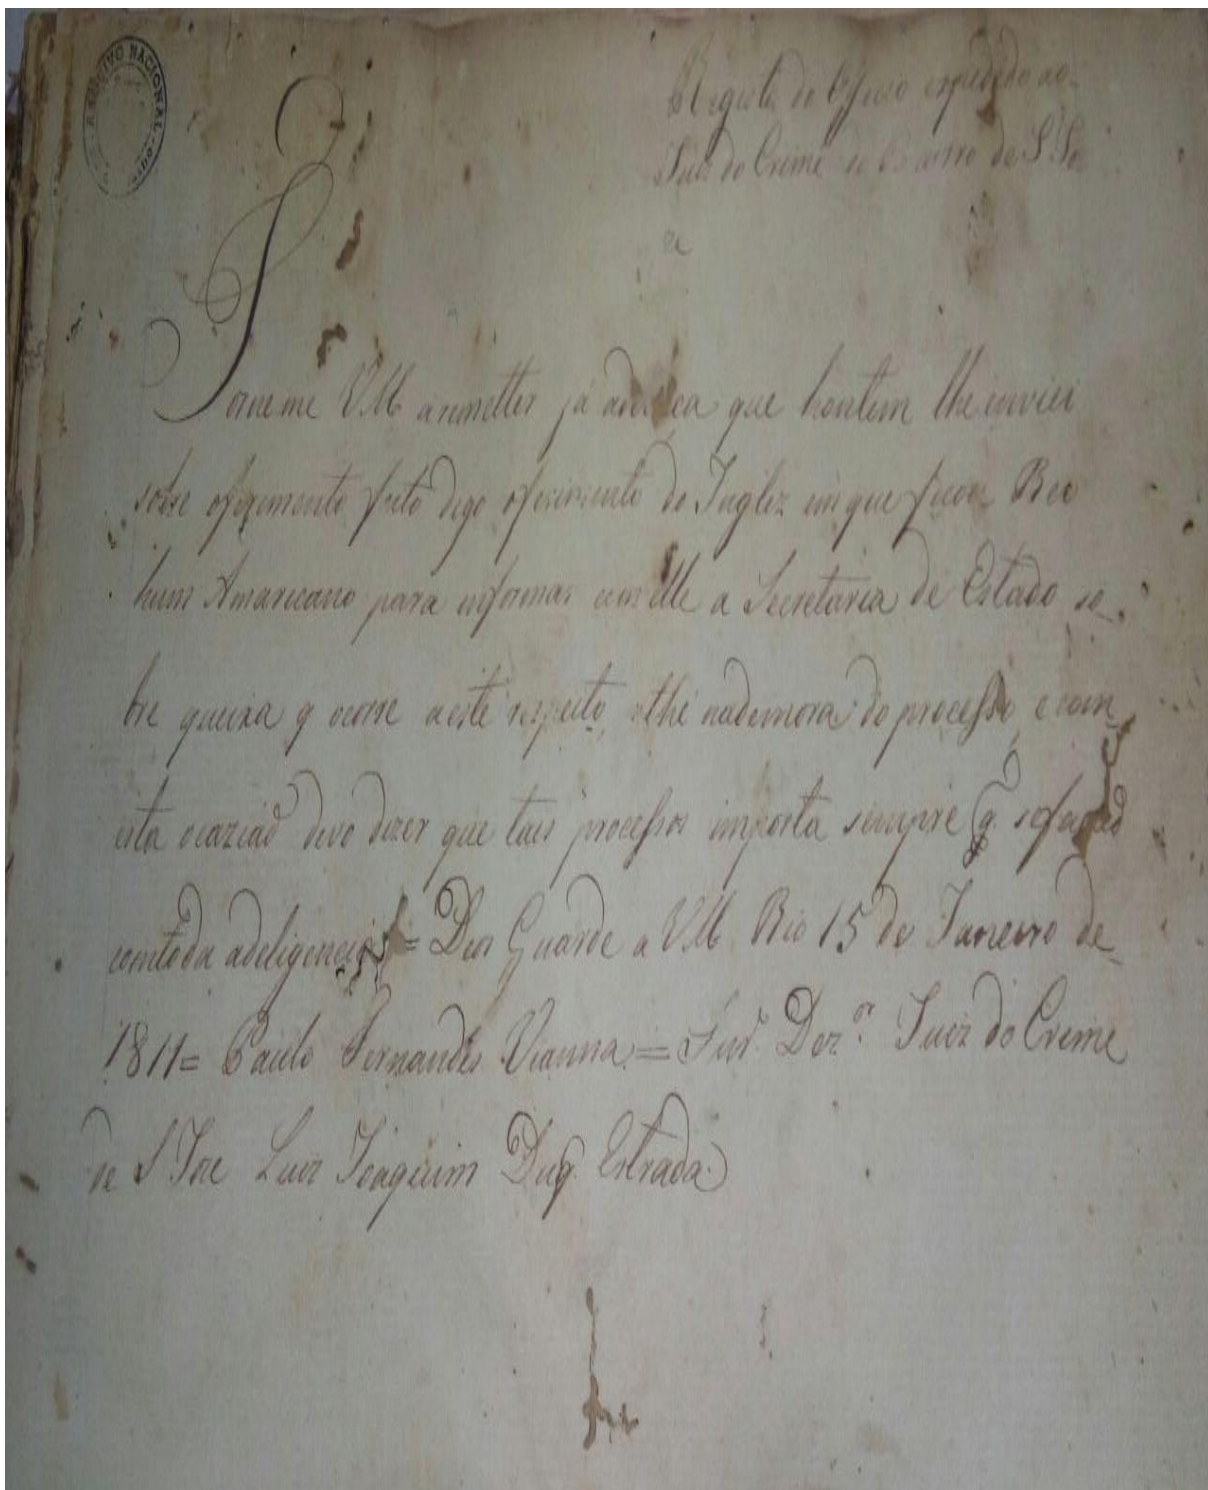 ARQUIVO NACIONAL
Registo do Officio expedido ao
Juiz do Crime do Bairro de S. Jo
ze
Torneme VM. a remetter já a devaça que hontem lhe inviei
sobre oferimento feito digo oferimento do Inglez em que ficou Reo
hum Amaricano para informar com elle a Secretaria de Estado so_
bre queixa q ocorre a este respeito, athé nademora do processo, e com
esta ocaziaõ devo dizer que tais processos importa sempre q. sefaçaõ
comtoda adeligencia = Deos Guarde a VM. Rio 15 de Janeiro de_
1811= Paulo Fernandes Vianna = Snr. Dez.or Juiz do Crime
de S Joze Luiz Joaquim Duq. Estrada